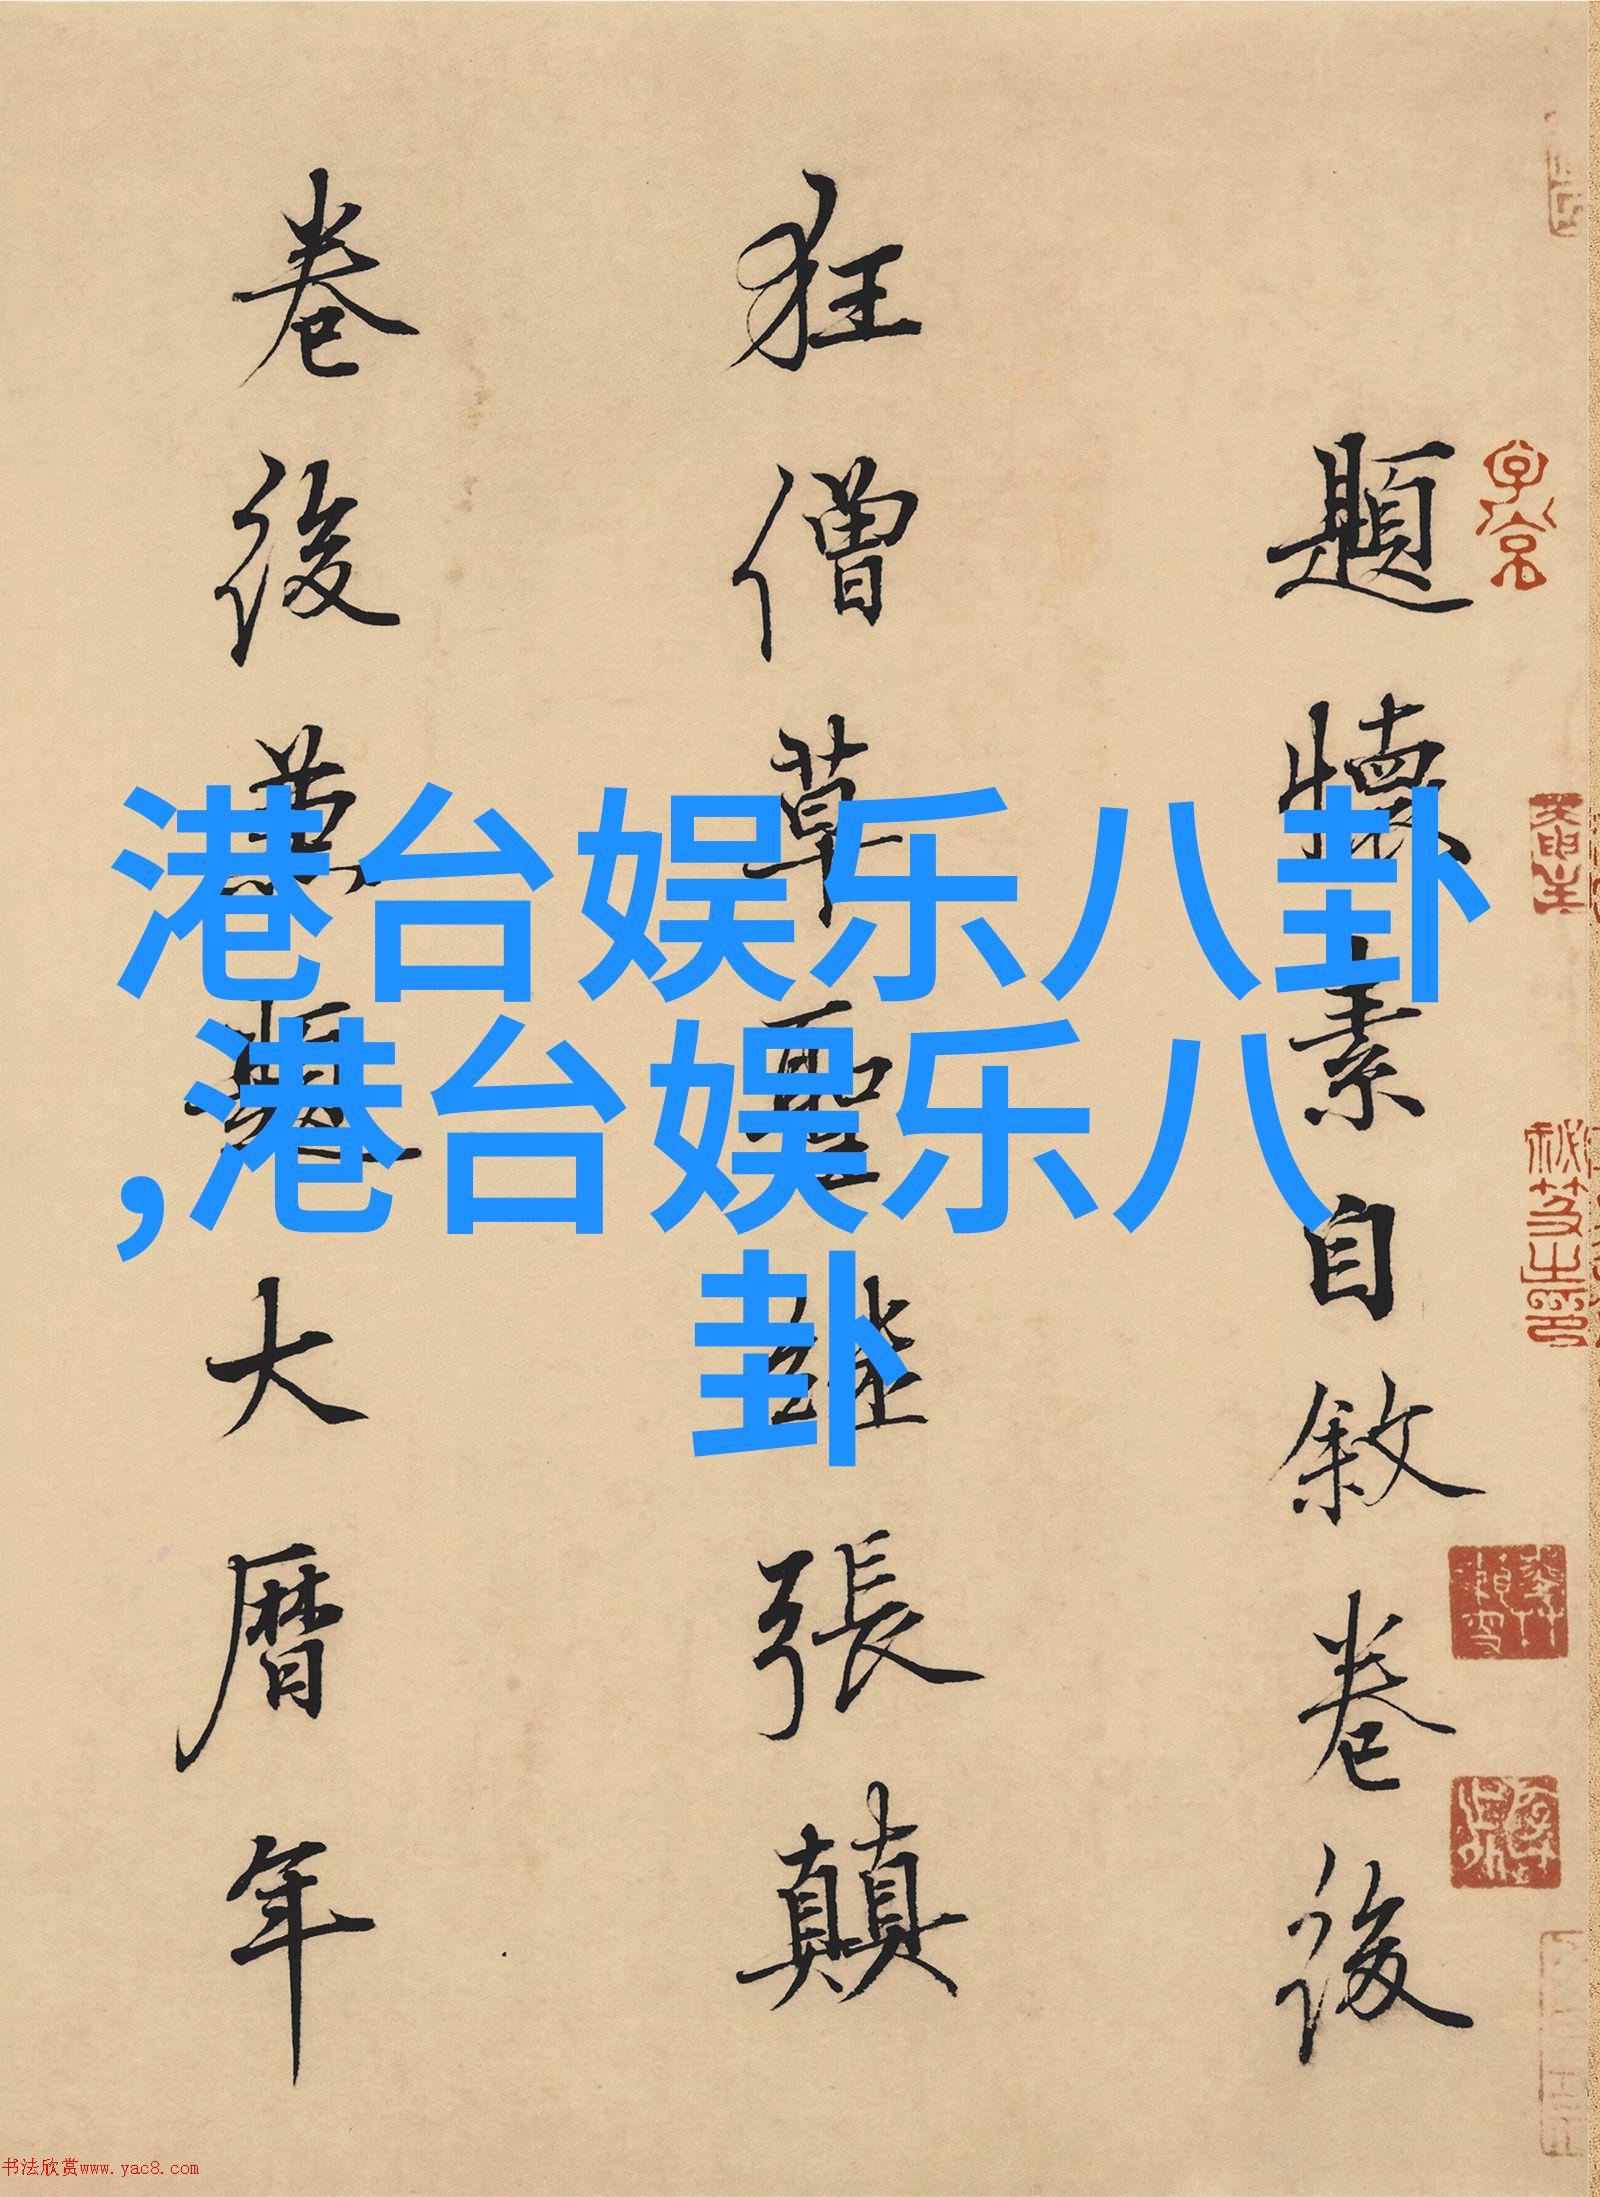 題懷素自敘卷後
狂僧草聖繼張顛
卷後兼題大曆年
港台娱乐八卦
,港台娱乐八
卦
书法欣赏www.yac8.com